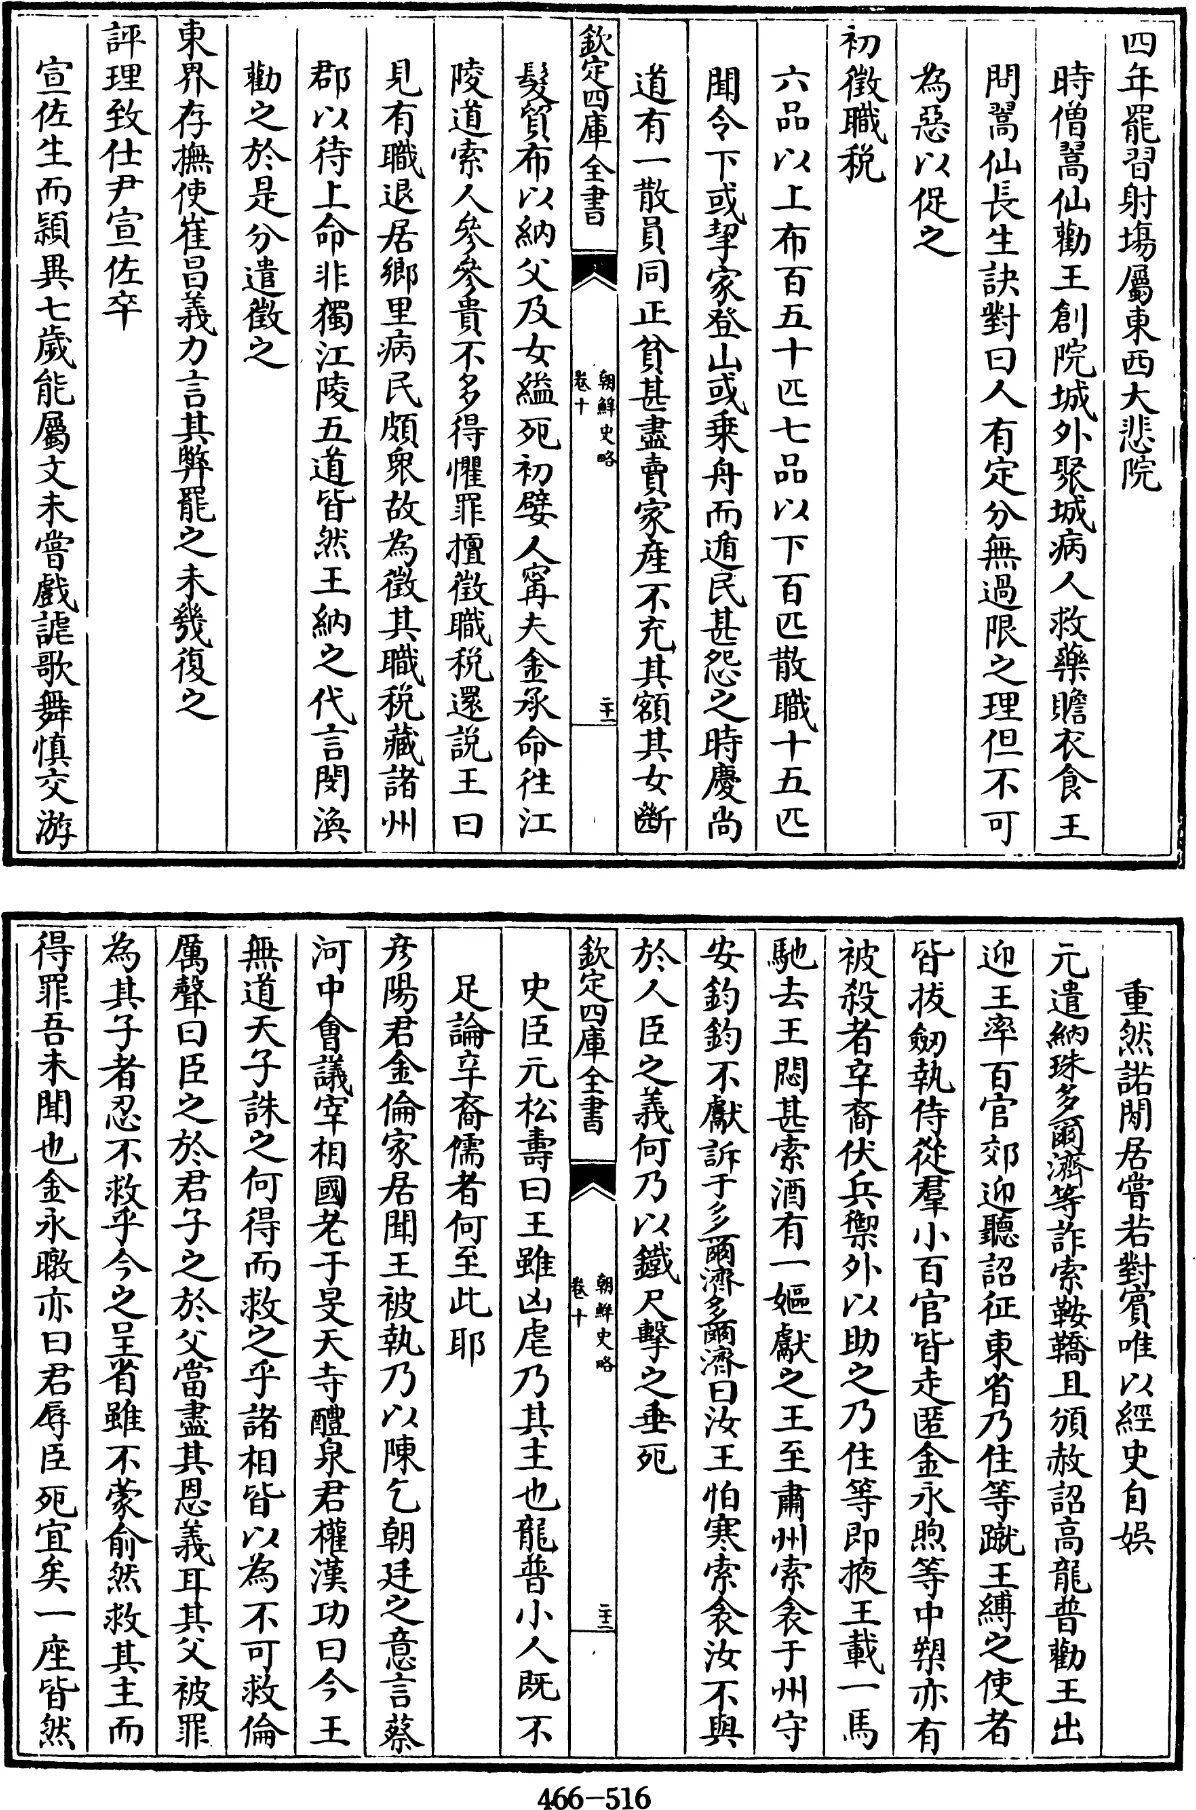 四年罷習射塲屬東西大悲院
時僧翯仙勸王創院城外聚城病人救藥贍衣食王
問翯仙長生訣對曰人有定分無過限之理但不可
為惡以促之
初徵職税
六品以上布百五十匹七品以下百匹散職十五匹
聞令下或挈家登山或乗舟而遁民甚怨之時慶尚
道有一散員同正貧甚盡賣家産不充其額其女斷
欽定四庫全書
朝鮮史略
卷十
二十一
髮貿布以納父及女縊死初嬖人甯夫金承命徃江
陵道索人參參貴不多得懼罪擅徵職税還説王曰
見有職退居鄉里病民頗衆故為徵其職税藏諸州
郡以待上命非獨江陵五道皆然王納之代言閔渙
勸之於是分遣徵之
東界存撫使崔昌義力言其弊罷之未幾復之
評理致仕尹宣佐卒
宣佐生而頴異七歲能屬文未嘗戲謔歌舞慎交游
重然諾閒居嘗若對賓唯以經史自娱
元遣納珠多爾濟等詐索鞍轎且頒赦詔高龍普勸王出
迎王率百官郊迎聽詔征東省乃住等蹴王縛之使者
皆拔劒執侍從羣小百官皆走匿金永煦等中槊亦有
被殺者辛裔伏兵禦外以助之乃住等即掖王載一馬
馳去王悶甚索酒有一嫗獻之王至肅州索衾于州守
安鈞鈞不獻訴于多爾濟多爾濟曰汝王怕寒索衾汝不與
於人臣之義何乃以鐵尺擊之垂死
欽定四庫全書
朝鮮史略
卷十
二十二
史臣元松壽曰王雖凶虐乃其主也龍普小人既不
足論辛裔儒者何至此耶
彦陽君金倫家居聞王被執乃以陳乞朝廷之意言蔡
河中會議宰相國老于旻天寺醴泉君權漢功曰今王
無道天子誅之何得而救之乎諸相皆以為不可救倫
厲聲曰臣之於君子之於父當盡其恩義耳其父被罪
為其子者忍不救乎今之呈省雖不蒙俞然救其主而
得罪吾未聞也金永暾亦曰君辱臣死宜矣一座皆然
466-516